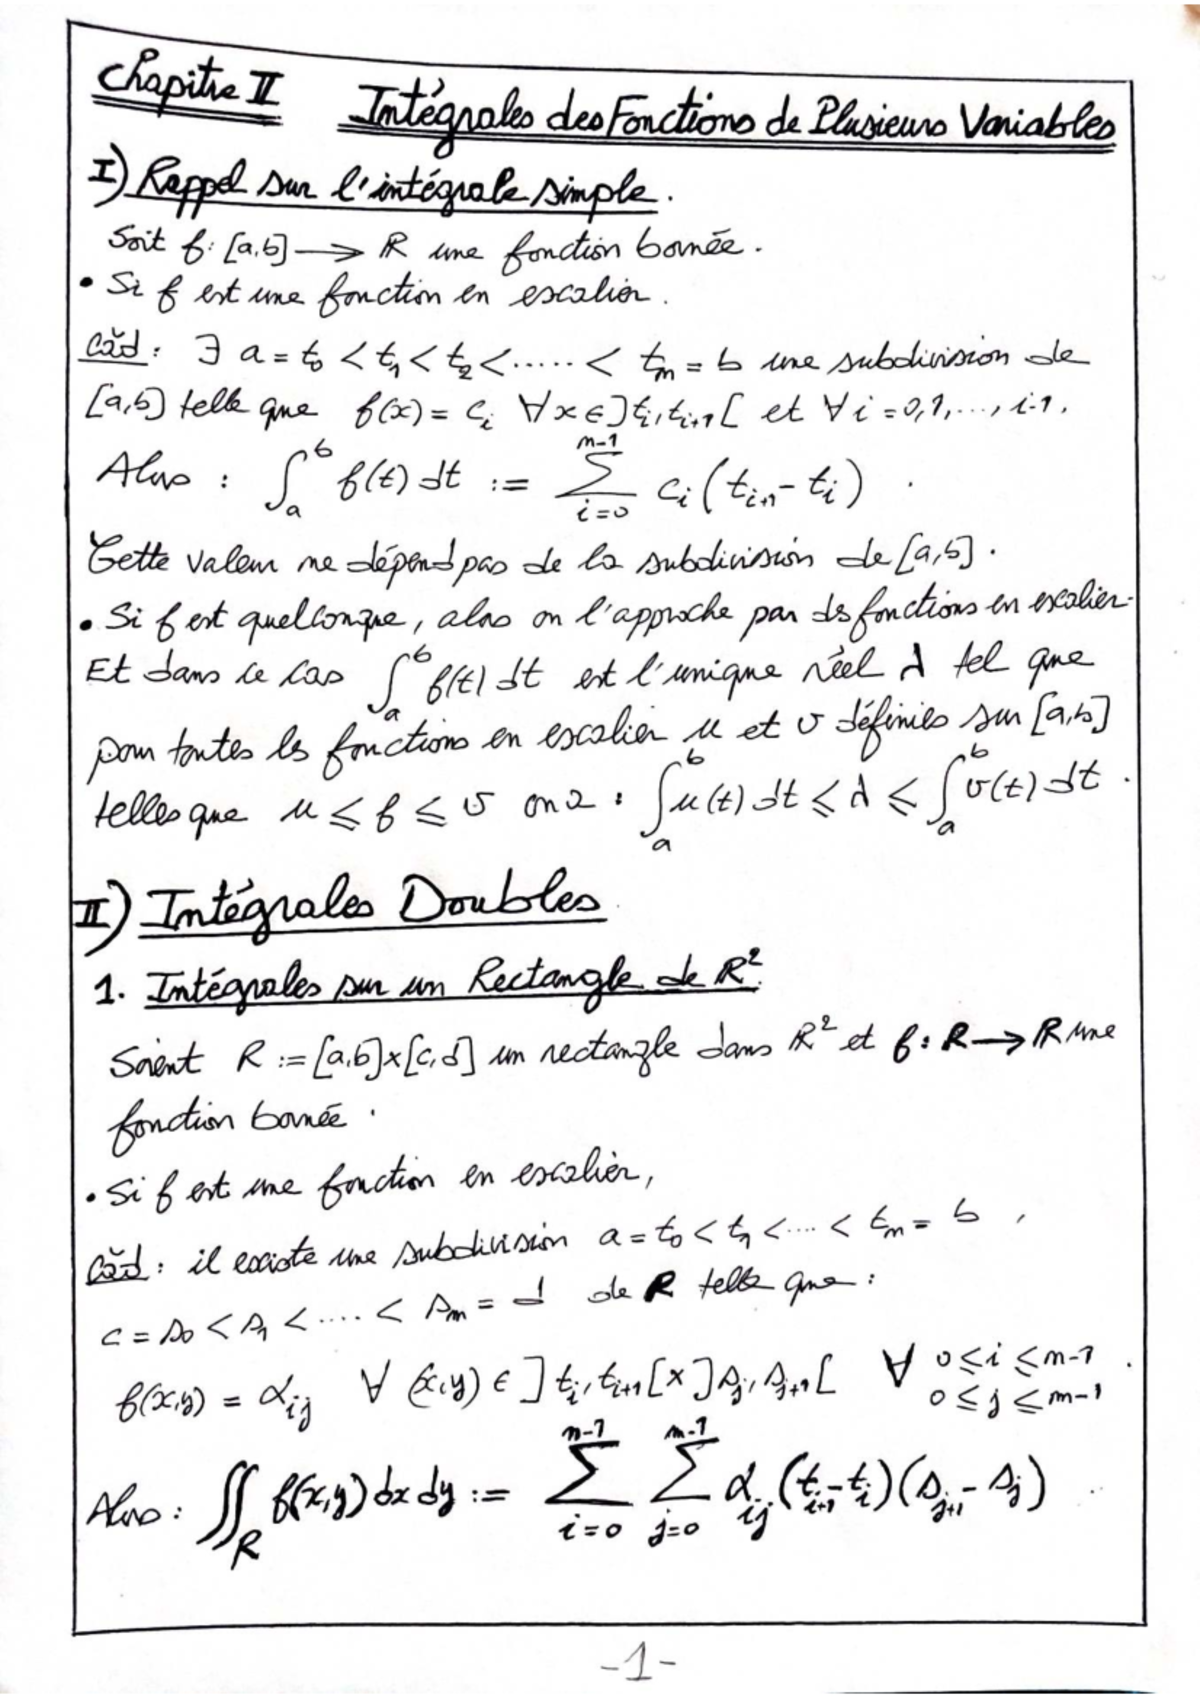 Chapitre II Intégrales des Fonctions de Plusieurs Variables
I) Rappel sur l'intégrale simple.
Soit f: [a,b] → ℝ une fonction bornée.
• Si f est une fonction en escalier.
Càd : ∃ a = t₀ < t₁ < t₂ < ..... < tₙ = b une subdivision de
[a,b] telle que f(x) = cᵢ ∀x ∈ ]tᵢ, tᵢ₊₁[ et ∀ i = 0,1,..., i-1.
Alors : ∫ₐᵇ f(t) dt := ∑ᵢ₌₀ⁿ⁻¹ cᵢ (tᵢ₊₁ - tᵢ) .
Cette valeur ne dépend pas de la subdivision de [a,b].
• Si f est quelconque, alors on l'approche par des fonctions en escalier.
Et dans ce cas ∫ₐᵇ f(t) dt est l'unique réel λ tel que
pour toutes les fonctions en escalier u et v définies sur [a,b]
telles que u ⩽ f ⩽ v on a : ∫ₐᵇ u(t) dt ⩽ λ ⩽ ∫ₐᵇ v(t) dt .
II) Intégrales Doubles
1. Intégrales sur un Rectangle de ℝ².
Soient R := [a,b]×[c,d] un rectangle dans ℝ² et f : R → ℝ une
fonction bornée .
• Si f est une fonction en escalier,
Càd : il existe une subdivision a = t₀ < t₁ < .... < tₙ = b ,
c = s₀ < s₁ < .... < sₘ = d de R telle que :
f(x,y) = αᵢⱼ ∀ (x,y) ∈ ]tᵢ, tᵢ₊₁[ × ]sⱼ, sⱼ₊₁[ ∀ 0⩽i⩽n-1 .
0⩽j⩽m-1
Alors : ∬_R f(x,y) dx dy := ∑ᵢ₌₀ⁿ⁻¹ ∑ⱼ₌₀ᵐ⁻¹ αᵢⱼ (tᵢ₊₁ - tᵢ)(sⱼ₊₁ - sⱼ) .
-1-